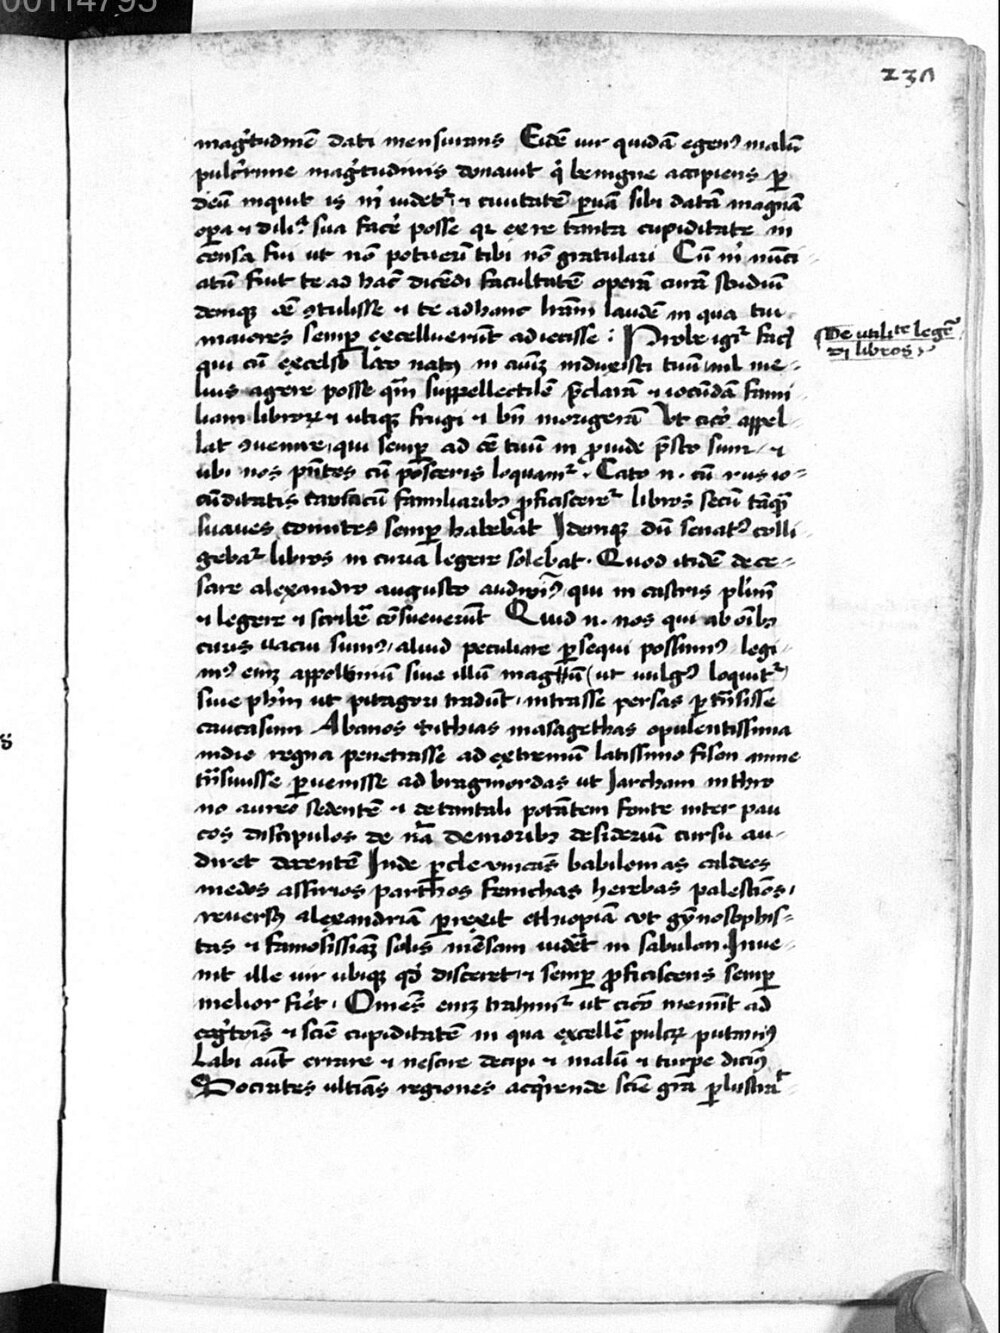 00114795
230
magͥtudinē dati mensurans Eidē uir quidā egenꝰ malū
pulcͥrime magͥtudinis donauit qͥ benigne accipiens ꝑ
deū inquit is mͥ uidetᷣ ⁊ ciuitatē ꝑuā sibi datā magnā
oꝑa ⁊ dilīᵃ sua facē posse qꝛ ex re tanta cupiditate in
censa fui ut nō potuerī tibi nō gratulari Cū mͥ nūci
atū fuit te ad hāc dicēdi facultatē operā curā studiū
deniqꝫ oē ꝯtulisse ⁊ te ad hanc lrāꝝ laudē in qua tui
maiores semꝑ excelluerūt adiecisse : Nobile igᷣ facꝰ
De utilitᵉ legē
di libros
qui cū excelso loco natꝰ in aīuꝫ induxisti tuū nil me-
lius agere posse qͣm suppellectilē p̄clarā ⁊ iocūdā fami
liam libroꝝ ⁊ utiqꝫ frugi ⁊ bn̄ morigerā Vt cicō appel
lat ꝯuenire, qui semꝑ ad cē tuū in ꝓinde p̄sto sunt ⁊
ubi nos pn̄tes cū poꝑosceris loquantᷣ. Cato n. cū rus io-
cūditatis cū familiaribꝫ ꝓficisceretᷣ libros secū tāqͣꝫ
suaues comites semꝑ habebat Idemqꝫ dū senatꝰ colli
gebatᷣ libros in curia legere solebat. Quod itidē de ce-
sare alexandro augusto audiuimꝰ, qui in castris plīmū
⁊ legere ⁊ scribē cōsueuerūt Quid n. nos qui ab oībꝫ
curis uacui sumꝰ, aliud peculiare ꝑsequi possumꝰ legi-
mꝰ eniꝫ appoloniū siue illū magū (ut uulgꝰ loquitᷣ)
siue phīm ut pitagori tradūt, intrasse persas ꝑtn̄sisse
caucasum Albanos scithias masagethas opulentissima
indie regna penetrasse ad extremū latissimo fison amne
tn̄smisse ꝑuenisse ad bragmordas ut Jarcham in thro
no aureo sedentē ⁊ de tantali potātem fonte inter pau
cos discipulos de nā de moribꝫ de siderū cursu au-
diret docentē Inde ꝑ elemitas babilonias caldees
medos assirios parthos fenichas herebas palestinos,
reuersꝰ alexandriā ꝑrexit ethiopiā ut gỹnosophis-
tas ⁊ famosissimaꝫ solis mēsam uidēt in sabulon. Inue-
nit ille uir ubiqꝫ qd̄ disceret ⁊ semꝑ ꝓficiscens semꝑ
melior fiēt. Omēs eniꝫ trahimᷣ ut cicō meminit ad
cogͥtiōis ⁊ sciē cupiditatē in qua excellē pulcꝝ putamꝰ
Labi aūt errare ⁊ nescire decipi ⁊ malū ⁊ turpe dicimꝰ
Socrates ultīas regiones acqͥrende sciē grā ꝑlustraᷣ